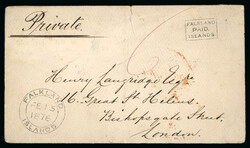 Private.
FALKLAND
PAID.
ISLANDS
Henry Langridge Esqre
16, Great St Helens.
Bishopsgate Street,
London.
FALKLAND
1876
ISLANDS